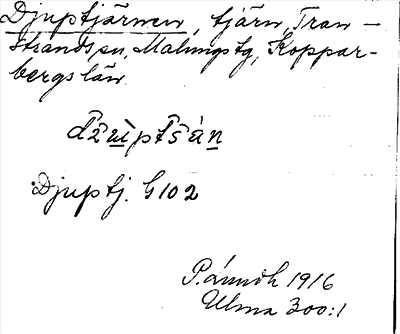 Djuptjärnen, tjärn, Tran-
strands sn, Malungs tg, Koppar-
bergs län.
Djuptj. G 102
1916
Ulma 300:1